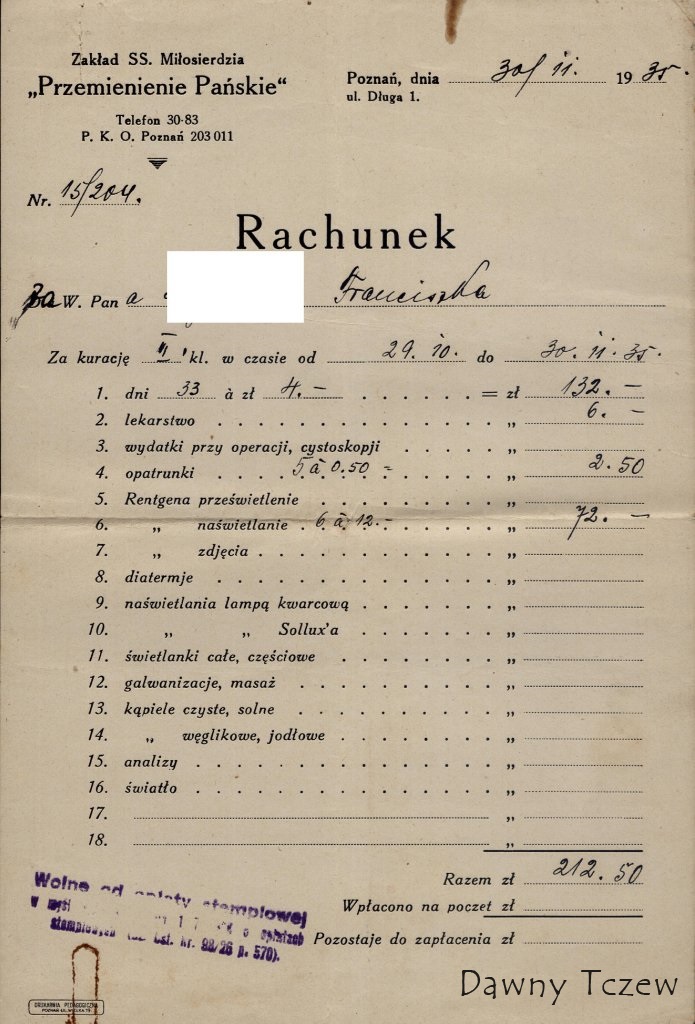 Zakład SS. Miłosierdzia
„Przemienienie Pańskie“
Telefon 30-83
P. K. O. Poznań 203 011
Poznań, dnia 30/11. 1935.
ul. Długa 1.
Nr. 15/204.
Rachunek
W. Pan a Franciszka
Za kurację II kl. w czasie od 29. 10. do 30. 11. 35.
1. dni 33 à zł 4.– . . . . . . = zł 132.–
2. lekarstwo . . . . . . . . . . . . . „ 6.–
3. wydatki przy operacji, cystoskopji . . . . „
4. opatrunki . . . . 5 à 0.50 = . . . . . . „ 2.50
5. Rentgena prześwietlenie . . . . . . . . „
6. „ naświetlanie . 6 à 12.– . . . . . „ 72.–
7. „ zdjęcia . . . . . . . . . . . „
8. diatermje . . . . . . . . . . . . . „
9. naświetlania lampą kwarcową . . . . . . „
10. „ „ Sollux'a . . . . . . . „
11. świetlanki całe, częściowe . . . . . . . „
12. galwanizacje, masaż . . . . . . . . . „
13. kąpiele czyste, solne . . . . . . . . . „
14. „ węglikowe, jodłowe . . . . . . . „
15. analizy . . . . . . . . . . . . . . „
16. światło . . . . . . . . . . . . . . „
17. „
18. „
Razem zł 212.50
Wpłacono na poczet zł
Pozostaje do zapłacenia zł
Wolne od opłaty stemplowej
w myśl o opłatach
stemplowych Ust. Nr. 98/26 p. 570).
DRUKARNIA PEDAGOGICZNA
Dawny Tczew